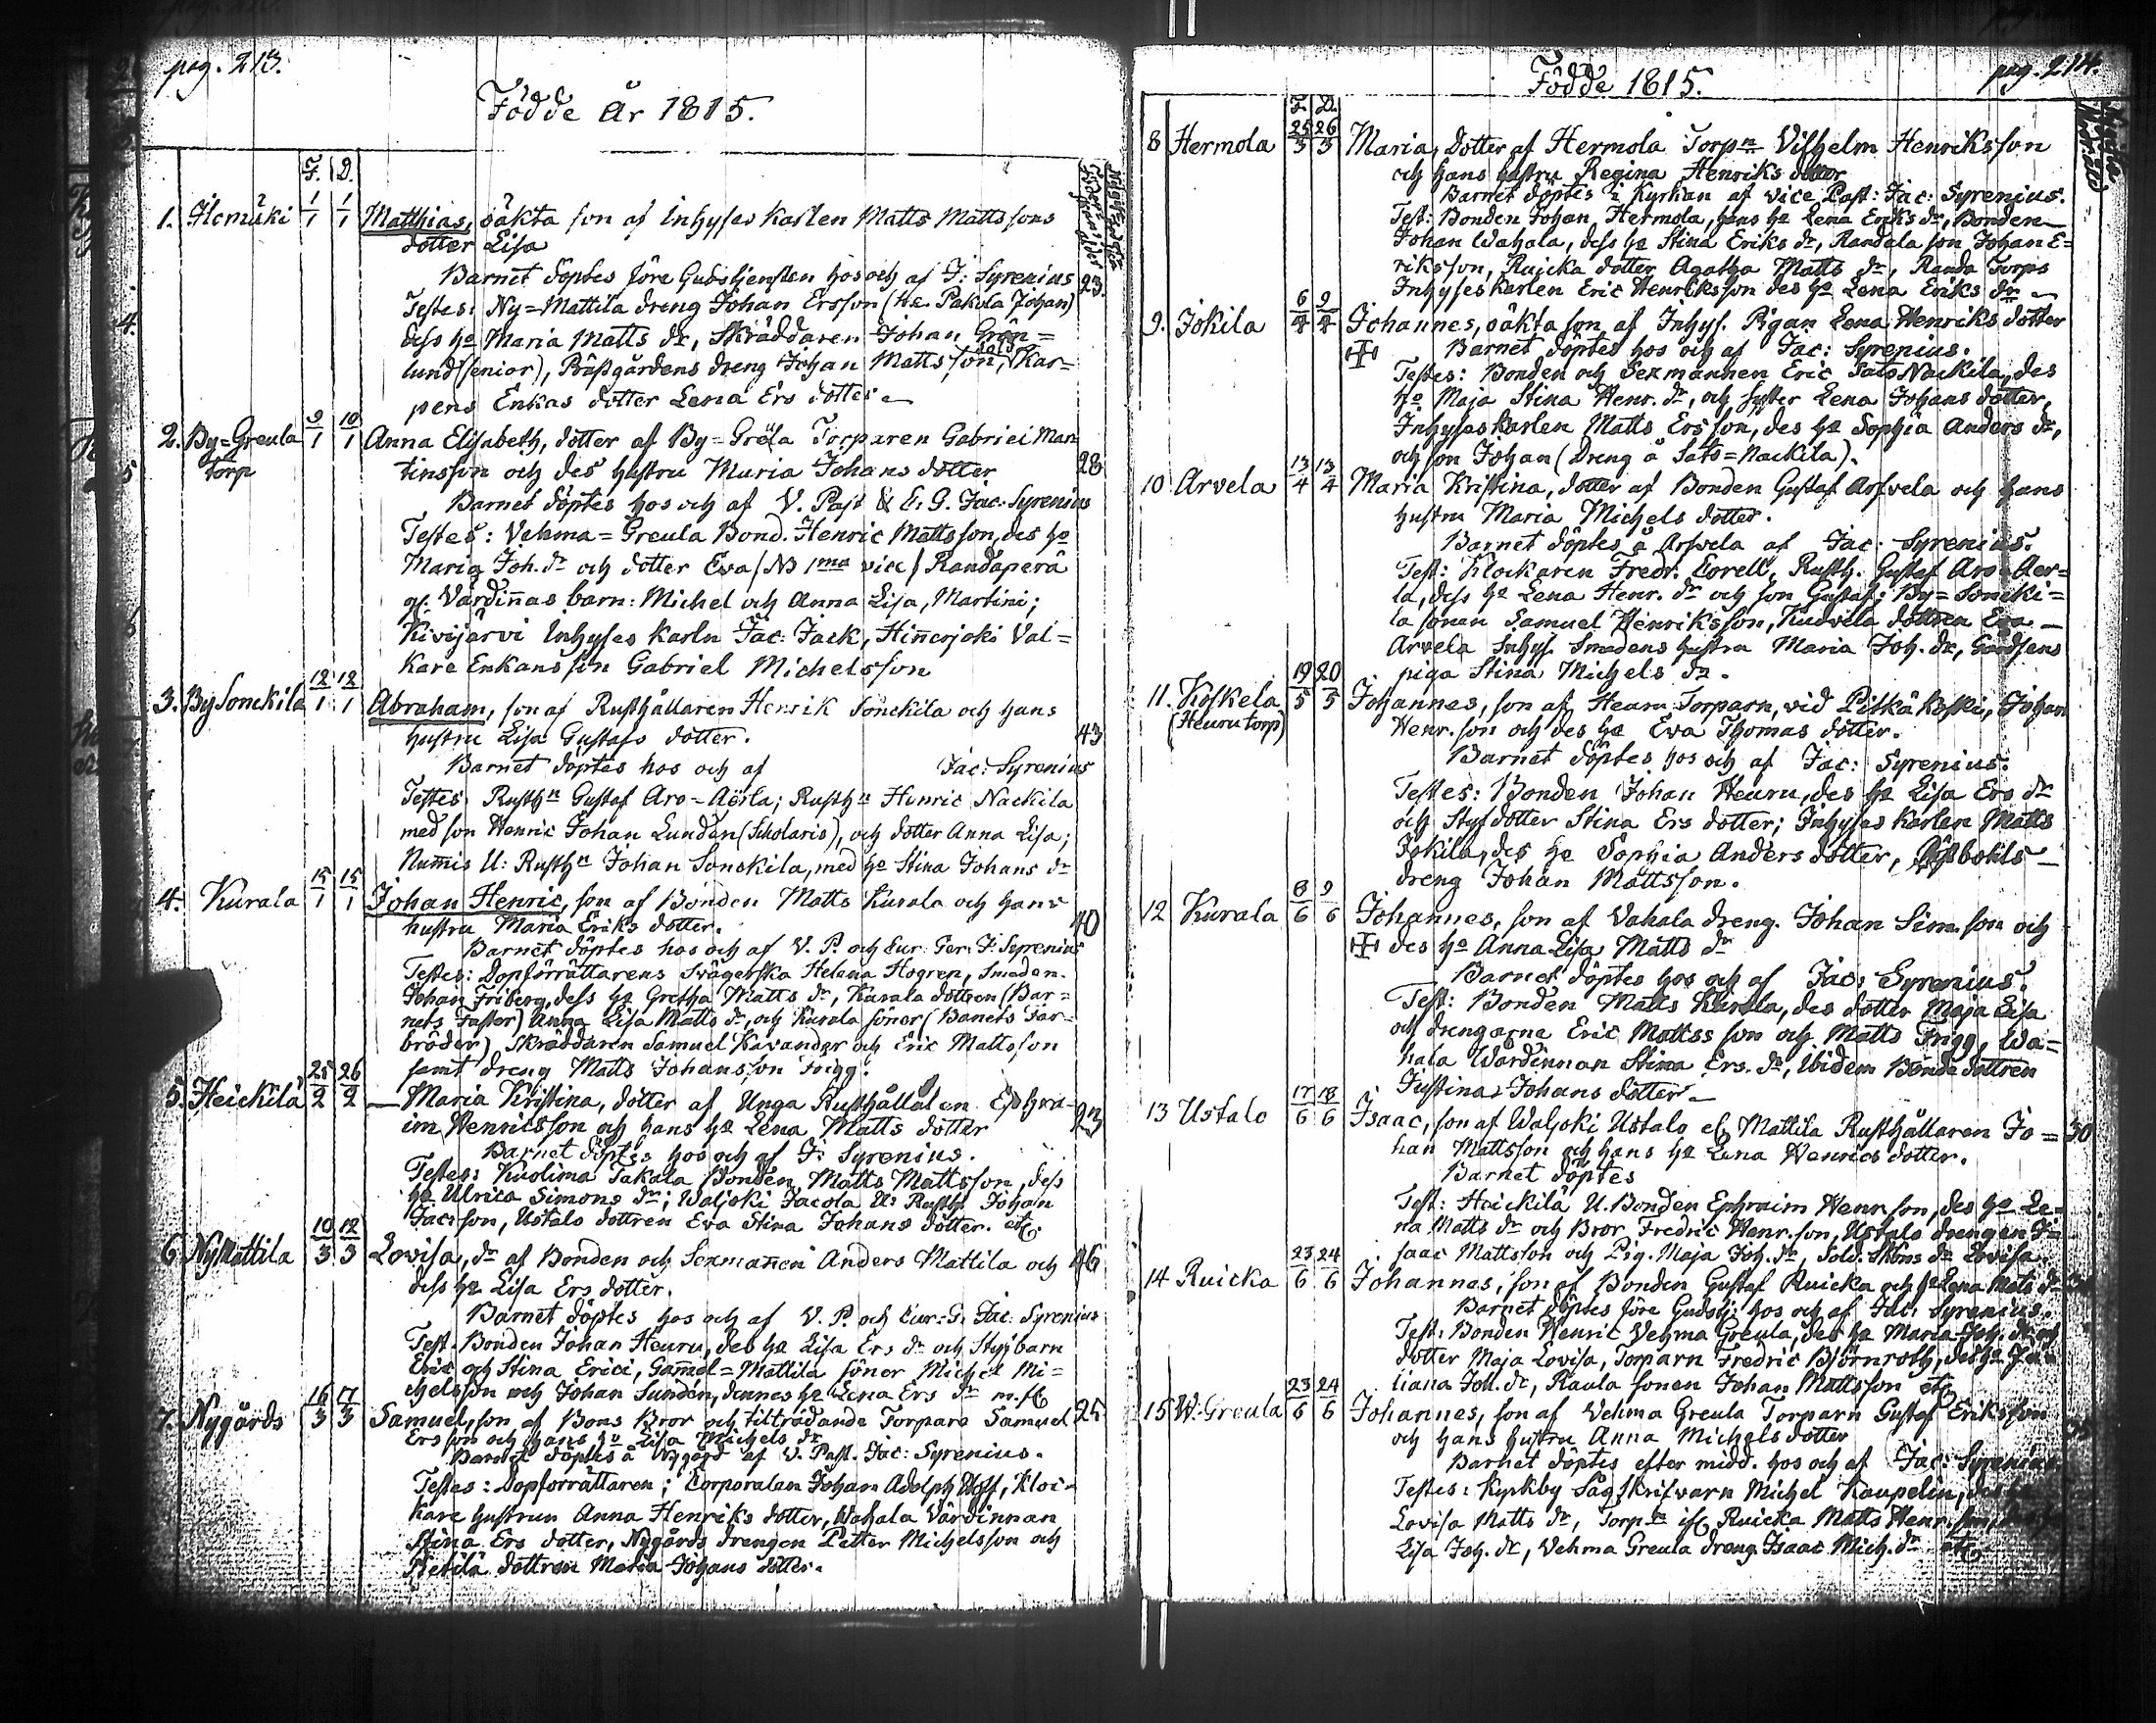 pag. 213.
Födde År 1815.
F. D.
1. Ilemäki 1/1 1/1 Matthias, oäkta son af Inhyses Karlen Matts Mattssons
dotter Lisa
Barnet döptes före Gudstjensten hos och af J: Syrenius 23.
Testes: Ny=Mattila dreng Johan Ersson (He. Pakola Johan)
dess ho Maria Matts dr, Skräddaren Johan Grön=
lund (senior), Prästgårdens dreng Johan Matts son, Kar=
pens Enkas dotter Lena Ers dotter
2. By=Greula torp 9/1 10/1 Anna Elisabeth, dotter af By=Gröla Torparen Gabriel Mar
tinsson och des hustru Maria Johans dotter 28
Barnet döptes hos och af V. Past & E. G. Jac: Syrenius
Testes: Vehma=Greula Bond. Henric Mattsson, des ho
Maria Joh. dr och dotter Eva / NB 1ma vice / Randaperä
gl. Värdinnas barn: Michel och Anna Lisa, Martini;
Kivijärvi Inhyses Karln Jac: Jack, Hinnerjoki Val=
kare Enkans son Gabriel Michelsson
3. By Sonckila 12/1 12/1 Abraham, son af Rusthållaren Henrik Sonckila och hans
hustru Lisa Gustafs dotter. 43
Barnet döptes hos och af Jac: Syrenius
Testes: Rusthn Gustaf Aro=Aerla; Rusthn Henric Nackila
med son Henric Johan Lunden (Scholaris), och dotter Anna Lisa;
Numis U: Rusthn Johan Sonckila, med ho Stina Johans dr
4. Kurala 15/1 15/1 Johan Henric, son af Bonden Matts Kurala och hans
hustru Maria Eriks dotter. 40
Barnet döptes hos och af V. P. och Cur. Ger. J: Syrenius
Testes: Dopförrättarens Svägerska Helena Hogren, Smeden
Johan Friberg, dess ho Gretha Matts dr, Kurala dottren (Bar=
nets Faster) Anna Lisa Matts dr, och Kurala söner (Barnets Far=
bröder) Skräddaren Samuel Kavander och Eric Mattsson
samt dreng Matts Johansson Frigg.
5. Heickilä 25/2 26/2 Maria Kristina, dotter af Unga Rusthållaren Ephra=
im Henricsson och hans ho Lena Matts dotter 23
Barnet döptes hos och af J: Syrenius.
Testes: Kuolima Takala Bonden Matts Mattsson, dess
ho Ulrica Simons dr; Waljoki Jacola U: Rusth. Johan
Jac: son, Ustalo dottren Eva Stina Johans dotter. etc.
6 NyMattila 10/3 12/3 Lovisa, dr af Bonden och Sexmannen Anders Mattila och 46
dess ho Lisa Ers dotter.
Barnet döptes hos och af V. P. och Cur: G. Jac: Syrenius
Test. Bonden Johan Heuru, des ho Lisa Ers dr och Styfbarn
Eric och Stina Erici, Gammel=Mattila söner Michel Mi=
chelsson och Johan Sundén, dennes ho Lena Ers dr m. fl
7. Nygårds 16/3 17/3 Samuel, son af Bons Bror och tilträdande Torpare Samuel 25
Ersson och hans ho Lisa Michels dr
Barnet döptes å Nygård af V. Past. Jac: Syrenius.
Testes: Dopförrättaren; Corporalen Johan Adolph Wolf, Kloc=
kare hustrun Anna Henriks dotter, Wahala Värdinnan
Stina Ers dotter, Nygårds drengen Petter Michelsson och
Pietilä dottren Maria Johans dotter.
pag. 214.
Födde 1815.
F. D.
8 Hermola 25/3 26/3 Maria, dotter af Hermola Torpn Vilhelm Henriksson
och hans hustru Regina Henriks dotter
Barnet döptes i Kyrkan af vice Past: Jac: Syrenius.
Test: Bonden Johan Hermola, hans ho Lena Eriks dr, Bonden
Johan Wahala, dess ho Stina Eriks dr, Randala son Johan E=
riksson, Ruicka dotter Agatha Matts dr, Randa Torps
Inhyses Karlen Eric Henriksson des ho Lena Eriks dr
9. Jokila 6/4 9/4 Johannes, oäkta son af Inhys. Pigan Lena Henriks dotter
Barnet döptes hos och af Jac: Syrenius.
Testes: Bonden och Sexmannen Eric Sato Nackila, des
ho Maja Stina Henr. dr, och syster Lena Johans dotter,
Inhyses Karlen Matts Ersson, des ho Sophia Anders dr,
och son Johan (Dreng å Sato=Nackila).
10. Arvela 13/4 13/4 Maria Kristina, dotter af Bonden Gustaf Arfvela och hans
hustru Maria Michels dotter.
Barnet döptes å Arfvela af Jac: Syrenius.
Test: Klockaren Fredr. Lorell, Rusth. Gustaf Aro=Aer=
la, dess ho Lena Henr. dr och son Gustaf; By=Soncki=
la sonen Samuel Henriksson, Kudvela dottren Eva
Arvela Inhys. Smedens hustru Maria Joh. dr, Gårdsens
piga Stina Michels dr.
11. Koskela (Heuru torp) 19/5 20/5 Johannes, son af Heuru Torparn, vid Pitkä Koski, Johan
Henr. son och des ho Eva Thomas dotter.
Barnet döptes hos och af Jac: Syrenius.
Testes: Bonden Johan Heuru, des ho Lisa Ers dr
och Styfdotter Stina Ers dotter; Inhyses Karlen Matts
Jokila, des ho Sophia Anders dotter,
dreng Johan Mattsson.
12 Kurala 8/6 9/6 Johannes, son af Vahala dreng. Johan Sim. son och
des ho Anna Lisa Matts dr
Barnet döptes hos och af Jac: Syrenius.
Test: Bonden Matts Kurala, des dotter Maja Lisa
och drengarne Eric Mattsson och Matts Frigg, Wa=
hala Wärdinnan Stina Ers. dr, Ibidem Bonde dottren
Justina Johans dotter
13 Ustalo 17/6 18/6 Isaac, son af Waljoki Ustalo el. Mattila Rusthållaren Jo= 30
han Mattsson och hans ho Lena Henrics dotter.
Barnet döptes
Test: Heickilä U. Bonden Ephraim Henr. son, des ho Le=
na Matts dr och Bror Fredric Henr. son, Ustalo drengen I=
saac Mattsson och Pig. Maja Joh. dr, Sold. Sköns dr Lovisa
14 Ruicka 23/6 24/6 Johannes, son af Bonden Gustaf Ruicka och ho Lena Mats dr
Barnet döptes före Gudstj: hos och af Jac: Syrenius.
Test: Bonden Henric Vehma Greula, des ho Maria Joh. dr och
dotter Maja Lovisa, Torparn Fredric Björnroth, des ho Ju=
liana Joh. dr, Raula sonen Johan Mattsson etc
15 W. Greula 23/6 24/6 Johannes, son af Vehma Greula Torparn Gustaf Eriksson
och hans hustru Anna Michels dotter
Barnet döptes efter midd. hos och af Jac: Syrenius
Testes: Kyrkby Sågskrifvarn Michel Kaupelin, des
Lovisa Matts dr, Torpn Ruicka Matts Henr. son
Lisa Joh. dr, Vehma Greula dreng Isaac Mich. dr etc